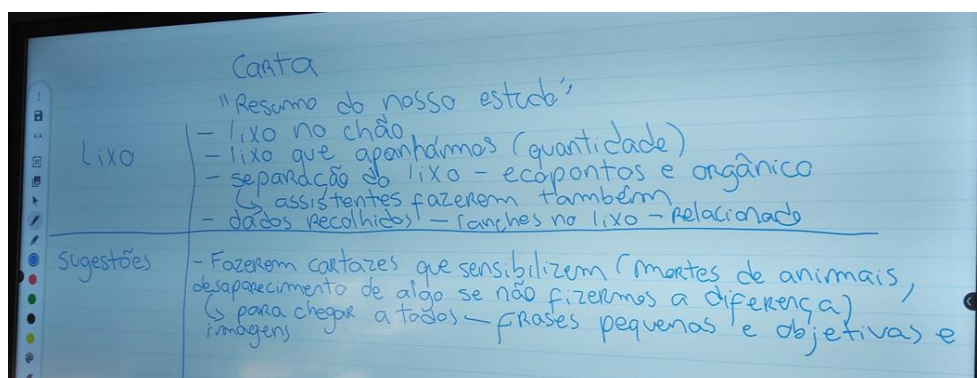 Carta
"Resumo do nosso estudo"
Lixo
- lixo no chão
- lixo que apanhámos (quantidade)
- separação do lixo - ecopontos e orgânico
↳ assistentes fazerem também
- dados recolhidos - lanches no lixo - relacionado
Sugestões
- Fazerem cartazes que sensibilizem (mortes de animais,
desaparecimento de algo se não fizermos a diferença)
↳ para chegar a todos - frases pequenas e objetivas e
imagens